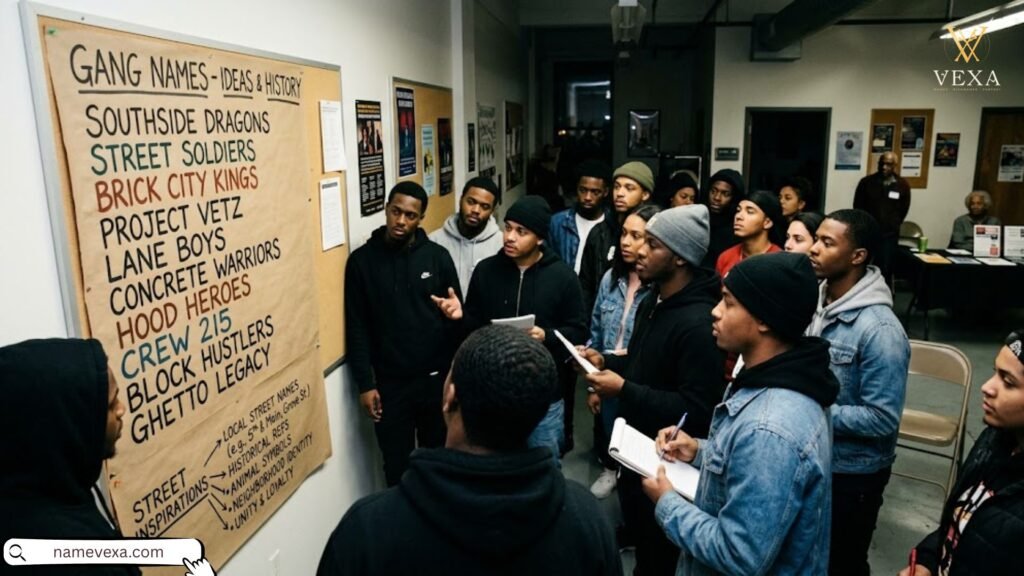 GANG NAMES - IDEAS & HISTORY
SOUTHSIDE DRAGONS
STREET SOLDIERS
BRICK CITY KINGS
PROJECT VETZ
LANE BOYS
CONCRETE WARRIORS
HOOD HEROES
CREW 215
BLOCK HUSTLERS
GHETTO LEGACY
STREET
INSPIRATIONS
LOCAL STREET NAMES
(e.g., 5th & Main, Grove St)
HISTORICAL REFS
ANIMAL SYMBOLS
NEIGHBORHOOD IDENTITY
UNITY & LOYALTY
VEXA
namevexa.com